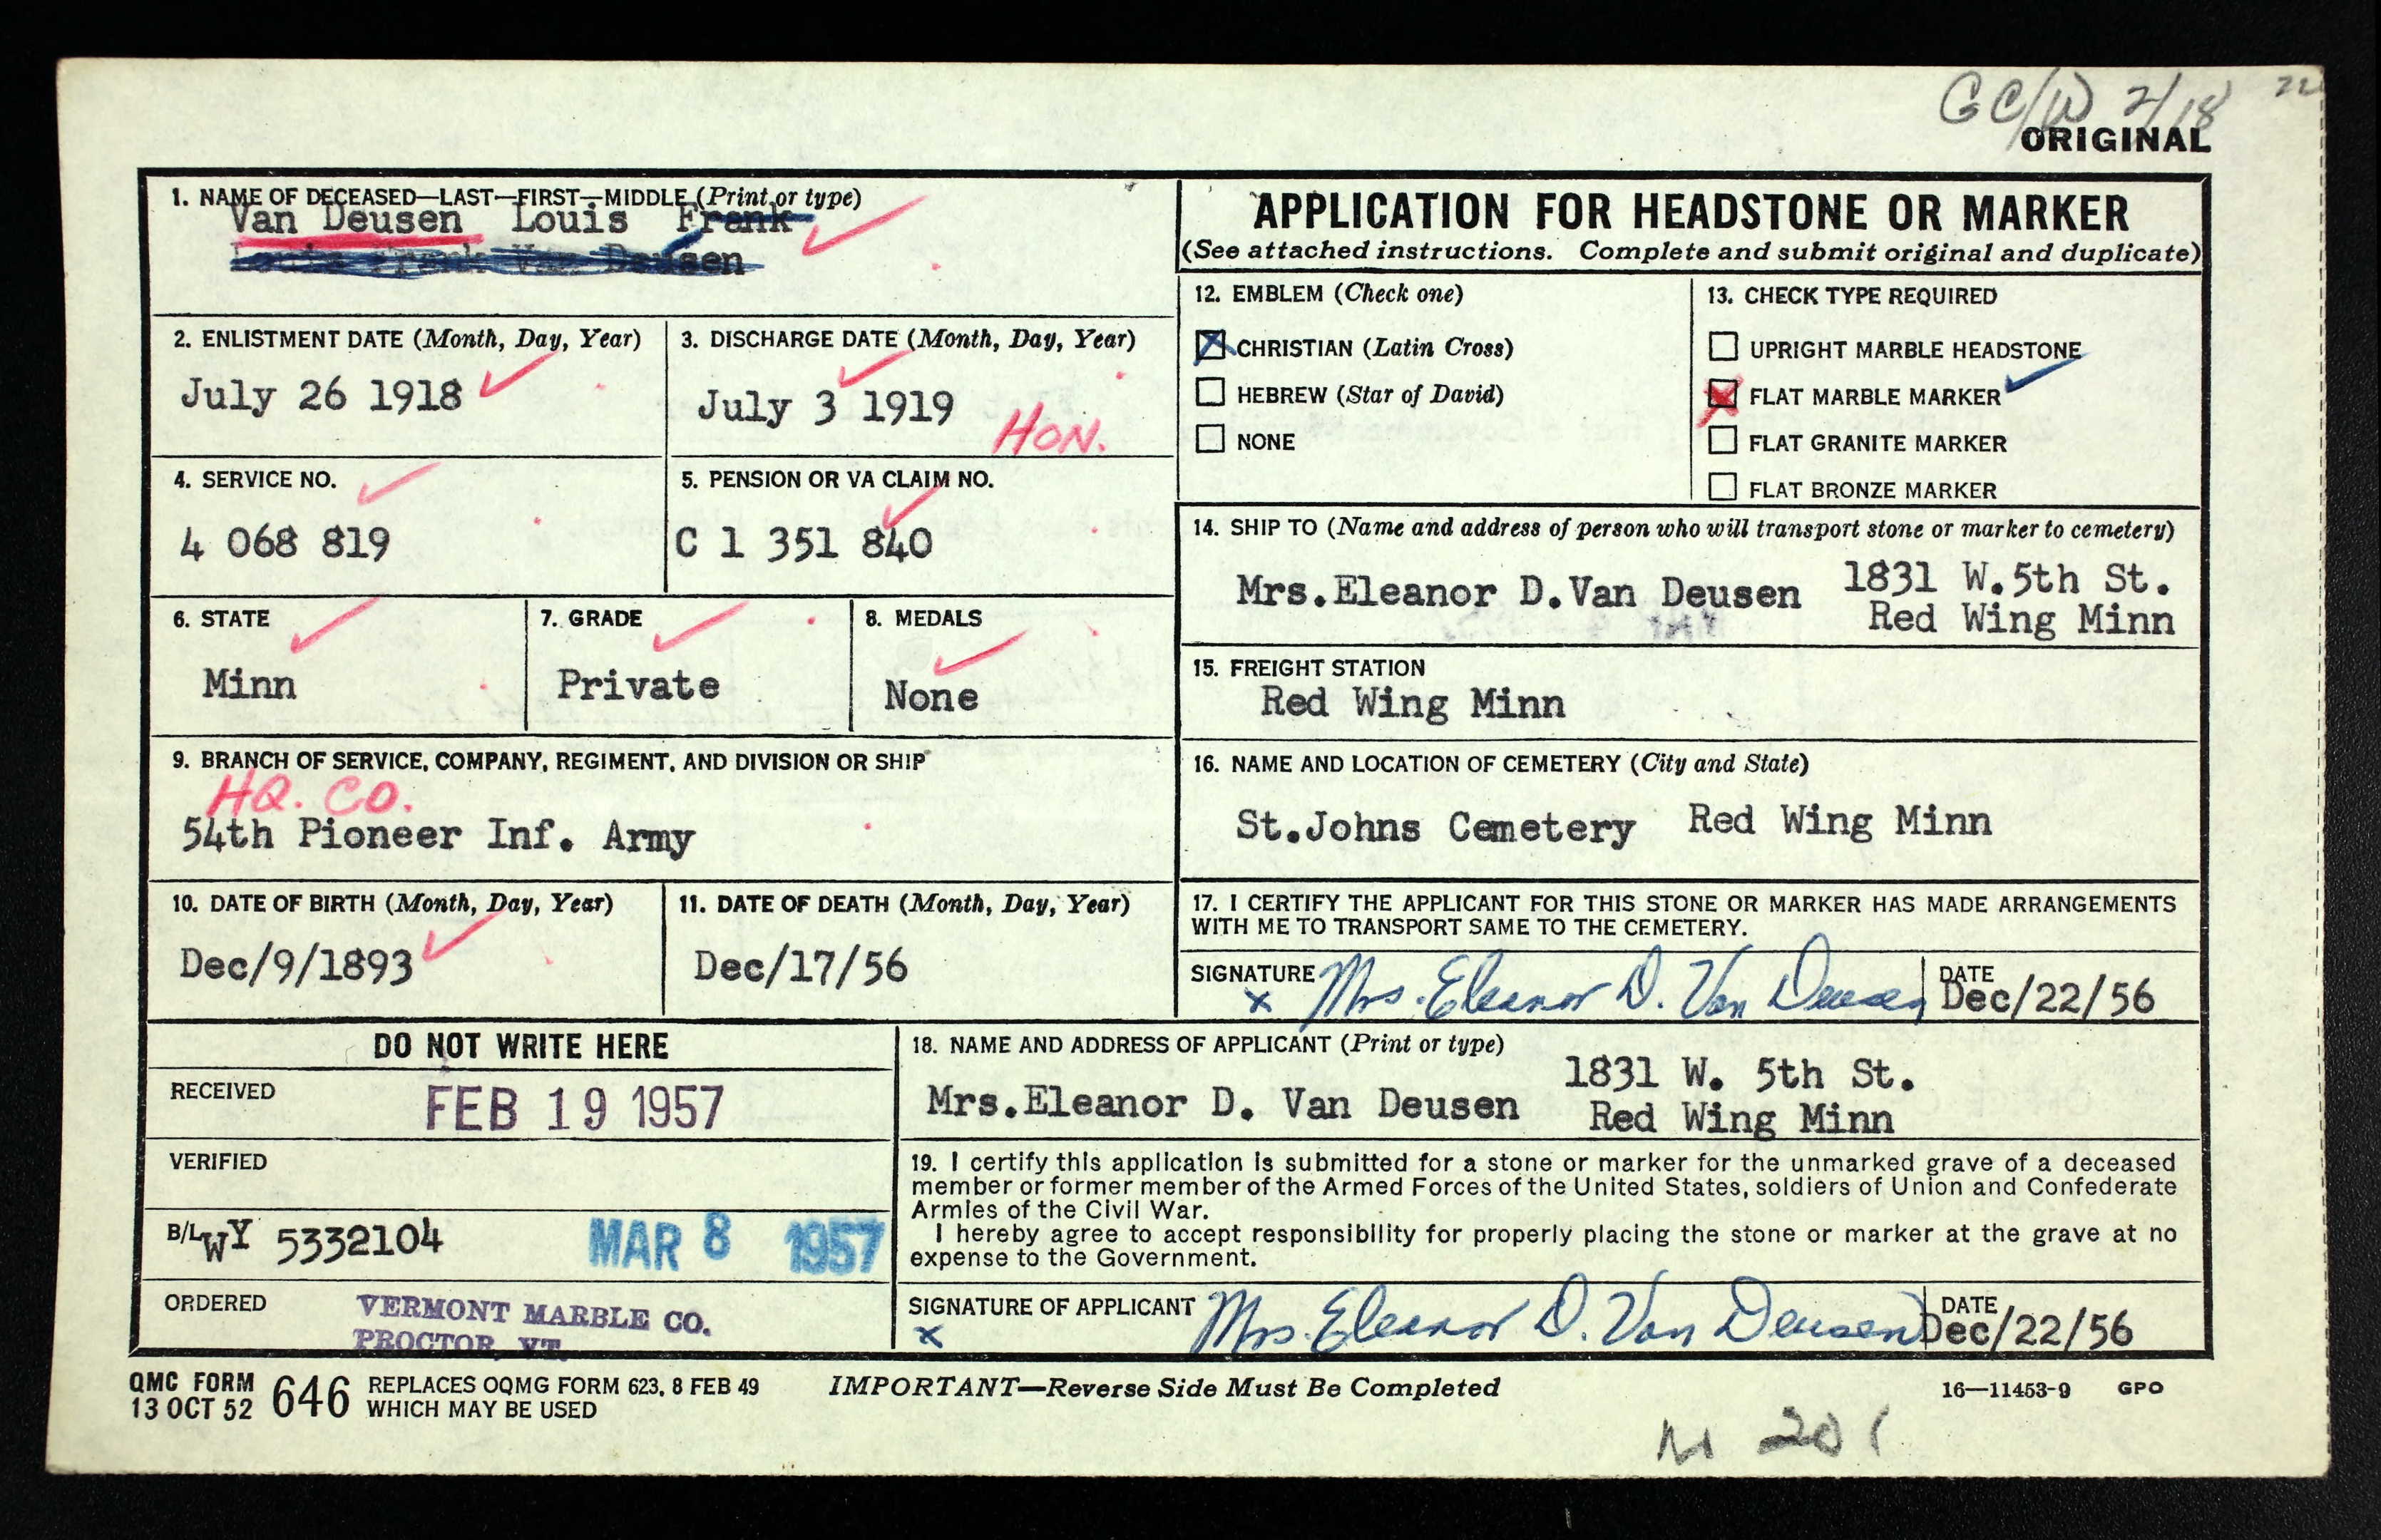 GC/W 2/18
ORIGINAL
1. NAME OF DECEASED—LAST—FIRST—MIDDLE (Print or type)
Van Deusen Louis Frank
Louis Frank Van Deusen
APPLICATION FOR HEADSTONE OR MARKER
(See attached instructions. Complete and submit original and duplicate)
2. ENLISTMENT DATE (Month, Day, Year)
July 26 1918
3. DISCHARGE DATE (Month, Day, Year)
July 3 1919
HON.
4. SERVICE NO.
4 068 819
5. PENSION OR VA CLAIM NO.
C 1 351 840
6. STATE
Minn
7. GRADE
Private
8. MEDALS
None
9. BRANCH OF SERVICE, COMPANY, REGIMENT, AND DIVISION OR SHIP
HQ. CO.
54th Pioneer Inf. Army
10. DATE OF BIRTH (Month, Day, Year)
Dec/9/1893
11. DATE OF DEATH (Month, Day, Year)
Dec/17/56
12. EMBLEM (Check one)
CHRISTIAN (Latin Cross)
HEBREW (Star of David)
NONE
13. CHECK TYPE REQUIRED
UPRIGHT MARBLE HEADSTONE
FLAT MARBLE MARKER
FLAT GRANITE MARKER
FLAT BRONZE MARKER
14. SHIP TO (Name and address of person who will transport stone or marker to cemetery)
Mrs.Eleanor D.Van Deusen 1831 W.5th St.
Red Wing Minn
15. FREIGHT STATION
Red Wing Minn
16. NAME AND LOCATION OF CEMETERY (City and State)
St.Johns Cemetery Red Wing Minn
17. I CERTIFY THE APPLICANT FOR THIS STONE OR MARKER HAS MADE ARRANGEMENTS
WITH ME TO TRANSPORT SAME TO THE CEMETERY.
SIGNATURE x Mrs. Eleanor D. Van Deusen
DATE Dec/22/56
DO NOT WRITE HERE
RECEIVED FEB 19 1957
VERIFIED
B/L WY 5332104 MAR 8 1957
ORDERED VERMONT MARBLE CO.
PROCTOR, VT.
18. NAME AND ADDRESS OF APPLICANT (Print or type)
Mrs.Eleanor D. Van Deusen 1831 W. 5th St.
Red Wing Minn
19. I certify this application is submitted for a stone or marker for the unmarked grave of a deceased
member or former member of the Armed Forces of the United States, soldiers of Union and Confederate
Armies of the Civil War.
I hereby agree to accept responsibility for properly placing the stone or marker at the grave at no
expense to the Government.
SIGNATURE OF APPLICANT x Mrs. Eleanor D. Van Deusen
DATE Dec/22/56
QMC FORM 646 REPLACES OQMG FORM 623, 8 FEB 49
13 OCT 52 WHICH MAY BE USED
IMPORTANT—Reverse Side Must Be Completed
16—11453-9 GPO